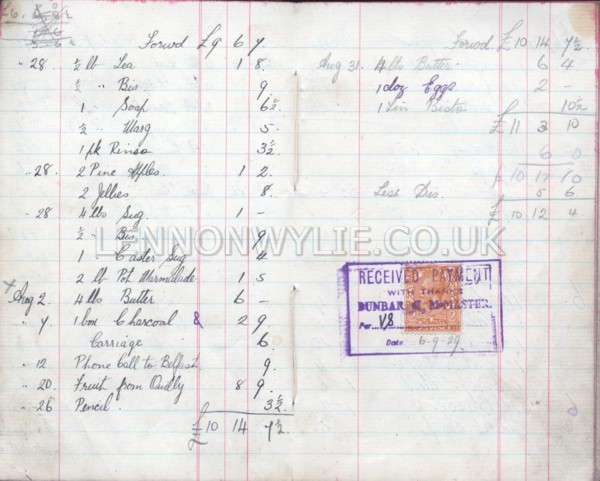 Forwd £9 6 7
" 28 ½ lb Tea 1 8
½ " Bis 9
1 " Soap 6½
½ " Marg 5
1 pk Rinso 3½
" 28 2 Pine Apples 1 2
2 Jellies 8
" 28 4 lbs Sug 1 -
½ " Bis 9
1 " Caster Sug 4
2 lb Pot Marmalade 1 5
+ Aug 2 4 lbs Butter 6 -
" 7 1 box Charcoal & 2 9
Carriage 6
" 12 Phone Call to Belfast 9
" 20 Fruit from 8 9
" 26 Pencil 3½
£10 14 7½
Forwd £10 14 7½
Aug 31 4 lbs Butter 6 4
1 doz Eggs 2 -
1 Bisto 10½
£11 3 10
6 0
10 17 10
Less Dis. 5 6
£10 12 4
LENNONWYLIE.CO.UK
RECEIVED PAYMENT
WITH THANKS
DUNBAR McMASTER.
Per VB
Date 6-9-29